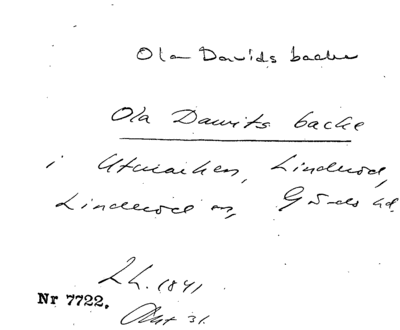 Ola Davids backe
Ola Dawits backe
i Utmarken, Linderöd,
Linderöd sn, Gärds hd.
Lh. 1841
Nr 7722.
Akt 31.